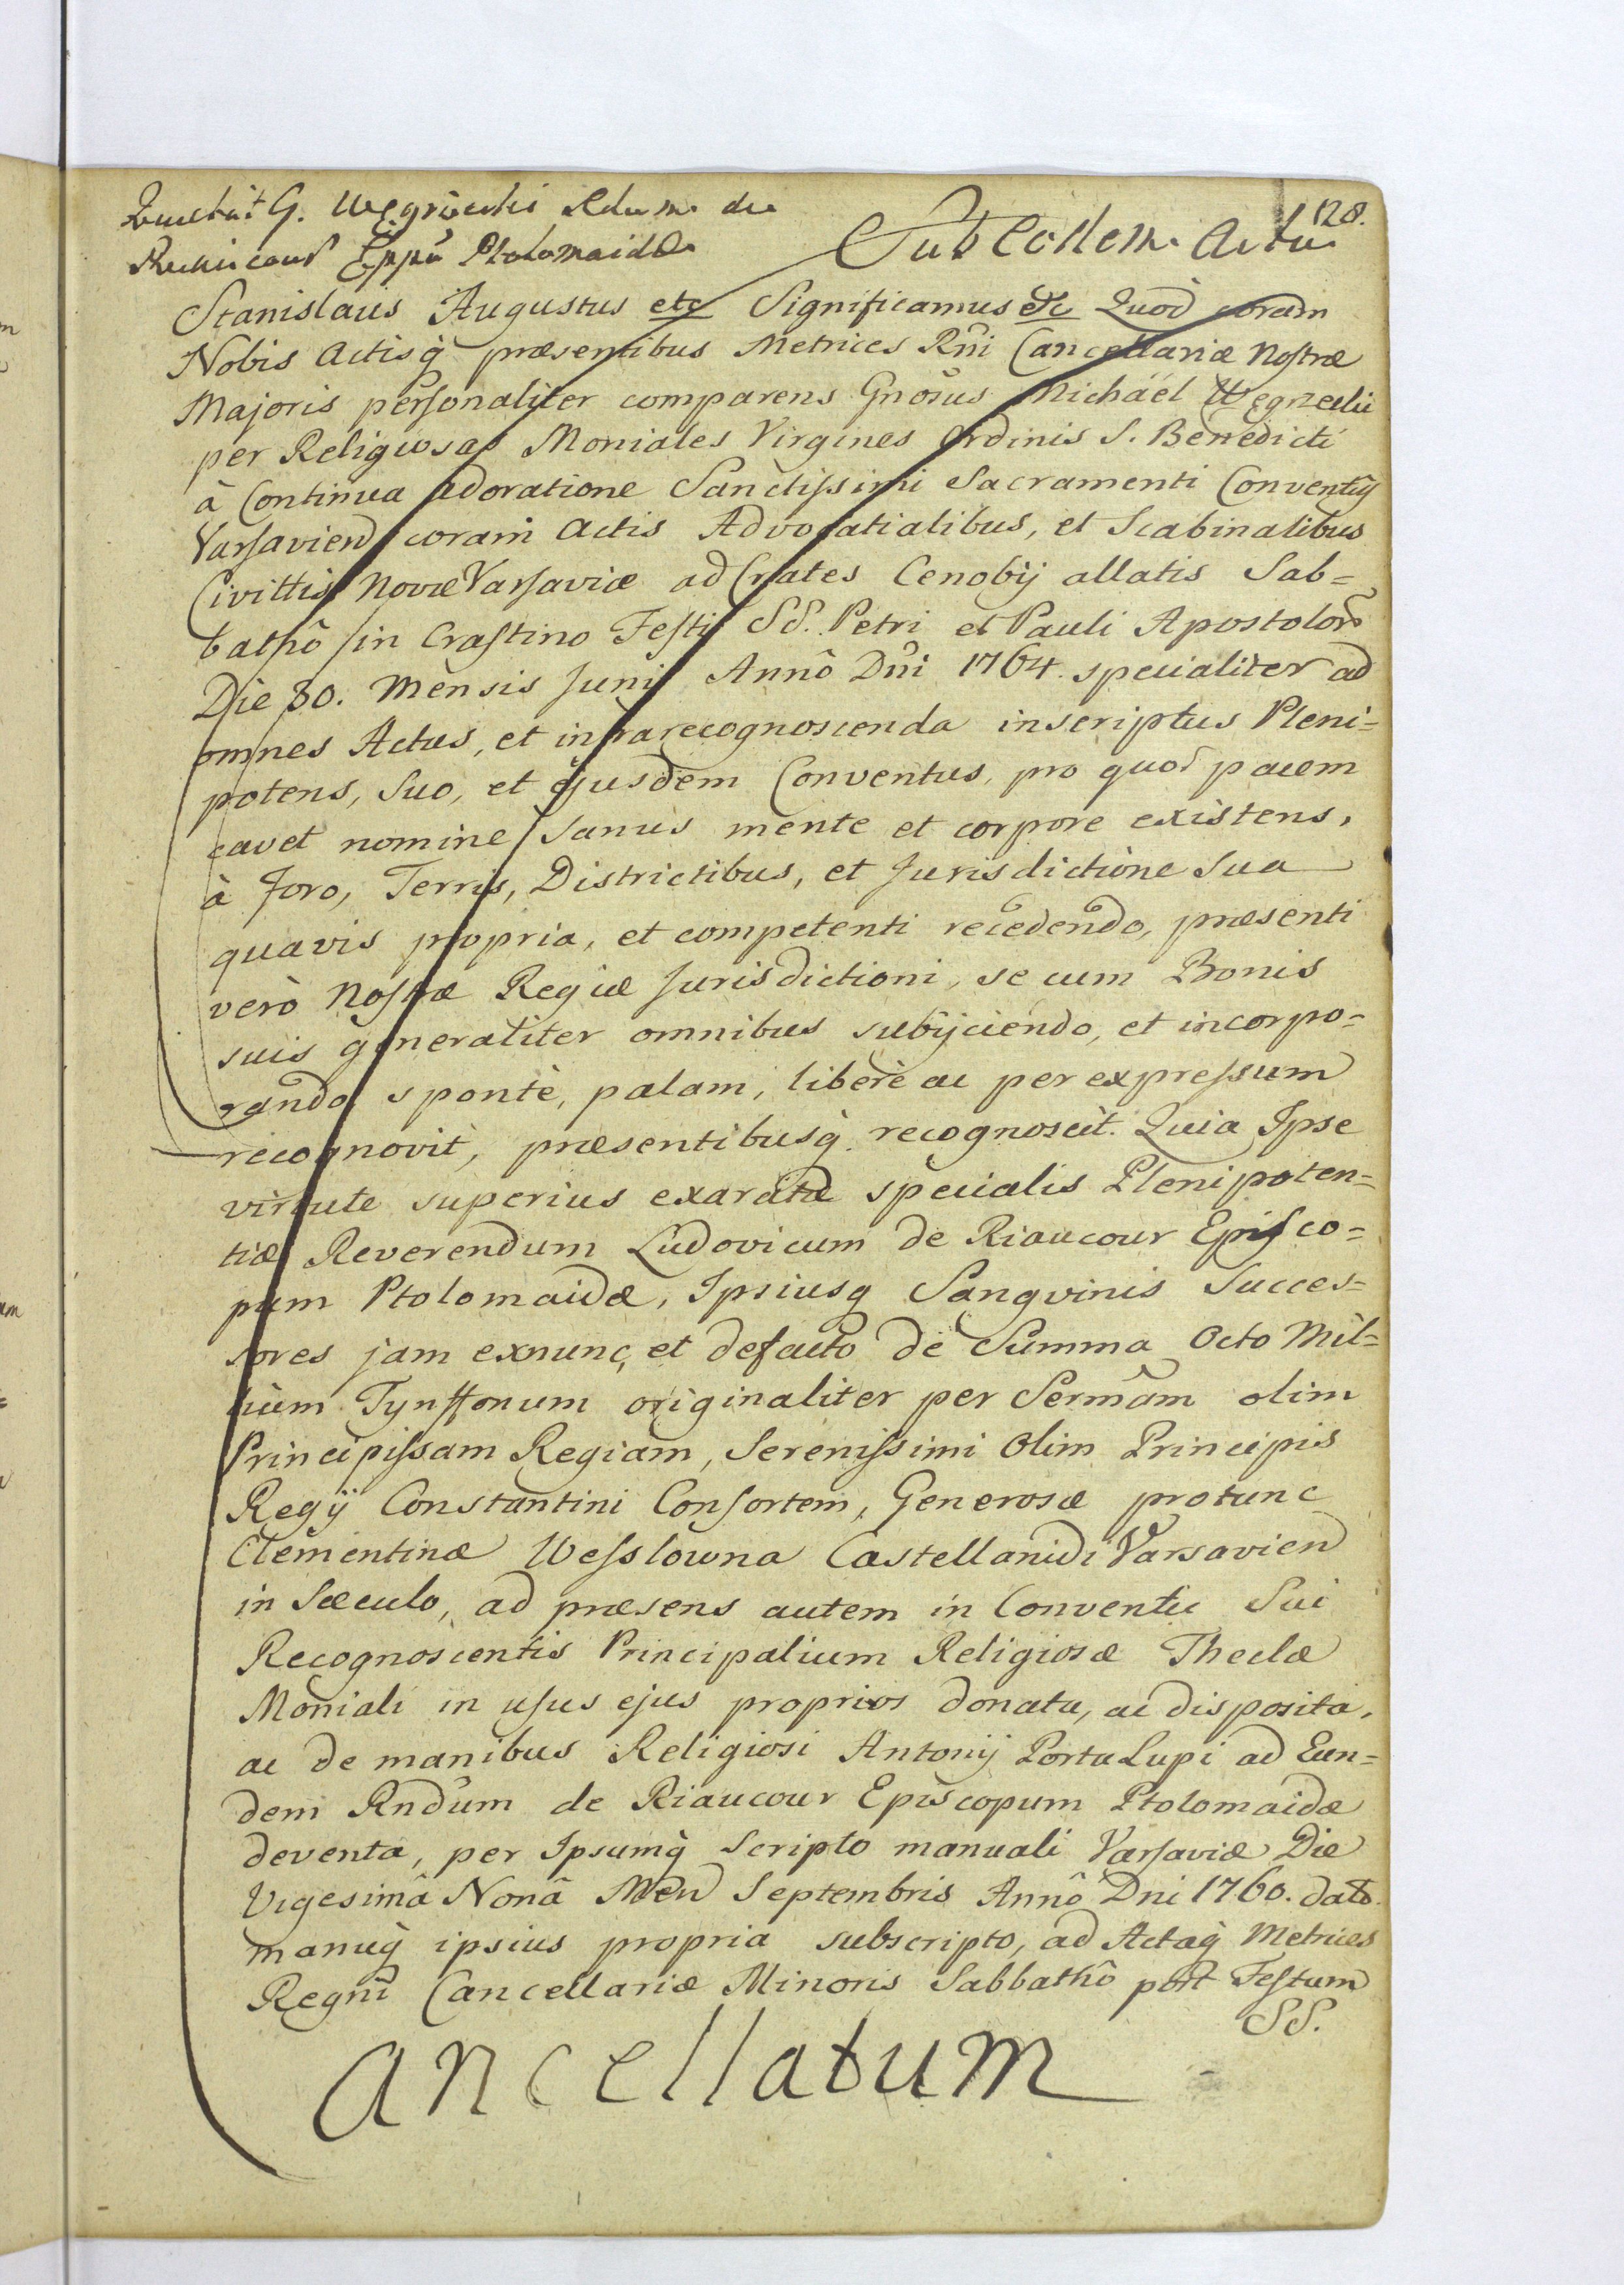 128.
Quietat G. Węgrzecki Rdum de
Riaucour Eppũ Ptolomaidæ
Sub Eodem Actu
Stanislaus Augustus etc Significamus etc Quod coram
Nobis Actisq̀ præsentibus Metrices Rñi Cancellariæ Nostræ
Majoris personaliter comparens Gnosus Michaël Węgrzecki
per Religiosas Moniales Virgines Ordinis S. Benedicti
à Continua adoratione Sanctissimi Sacramenti Conventus
Varsavien coram Actis Advocatialibus, et Scabinalibus
Civittis Novæ Varsaviæ ad Crates Cenobij allatis Sab=
bathô in Crastino Festi SS. Petri et Pauli Apostolorũ
Die 30. Mensis Junij Annô Dñi 1764. specialiter ad
omnes Actus, et infrarecognoscenda inscriptus Pleni=
potens, Suo, et ejusdem Conventus, pro quo pacem
cavet nomine, Sanus mente et corpore existens,
à Foro, Terris, Districtibus, et Jurisdictione Sua
quavis propria, et competenti recedendo, præsenti
verò Nostræ Regiæ Jurisdictioni, se cum Bonis
suis generaliter omnibus subijciendo, et incorpo=
rando, spontè, palam, liberè ac per expressum
recognovit, præsentibusq̀ recognoscit. Quia Ipse
virtute superius exaratæ specialis Plenipoten=
tiæ Reverendum Ludovicum de Riaucour Episco=
pum Ptolomaidæ, Ipsiusq Sangvinis Succes=
sores jam exnunc, et defacto de Summa Octo Mil=
lium Tynffonum originaliter per Sermãm olim
Principissam Regiam, Serenissimi Olim Principis
Regij Constantini Consortem, Generosæ protunc
Clementinæ Wesslowna Castellanidi Varsavien
in Sæculo, ad præsens autem in Conventu Sui
Recognoscentis Principalium Religiosæ Theclæ
Moniali in usus ejus proprios donata, ac disposita,
ac de manibus Religiosi Antonij PortaLupi ad Eun=
dem Rndũm de Riaucour Episcopum Ptolomaidæ
deventa, per Ipsumq̀ Scripto manuali Varsaviæ Die
Vigesimâ Nonâ Men Septembris Annô Dni 1760. dato
manuq̀ ipsius propria subscripto, ad Actaq̀ Metrices
Regni Cancellariæ Minoris Sabbathô post Festum
SS.
Cancellatum